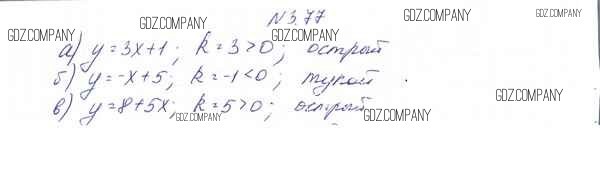 N 3.77
а) y = 3x+1; k = 3>0; острый
б) y = -x+5; k = -1<0; тупой.
в) y = 8+5x; k = 5>0; острый
GDZ.COMPANY
GDZ.COMPANY
GDZ.COMPANY
GDZ.COMPANY
GDZ.COMPANY
GDZ.COMPANY
GDZ.COMPANY
GDZ.COMPANY